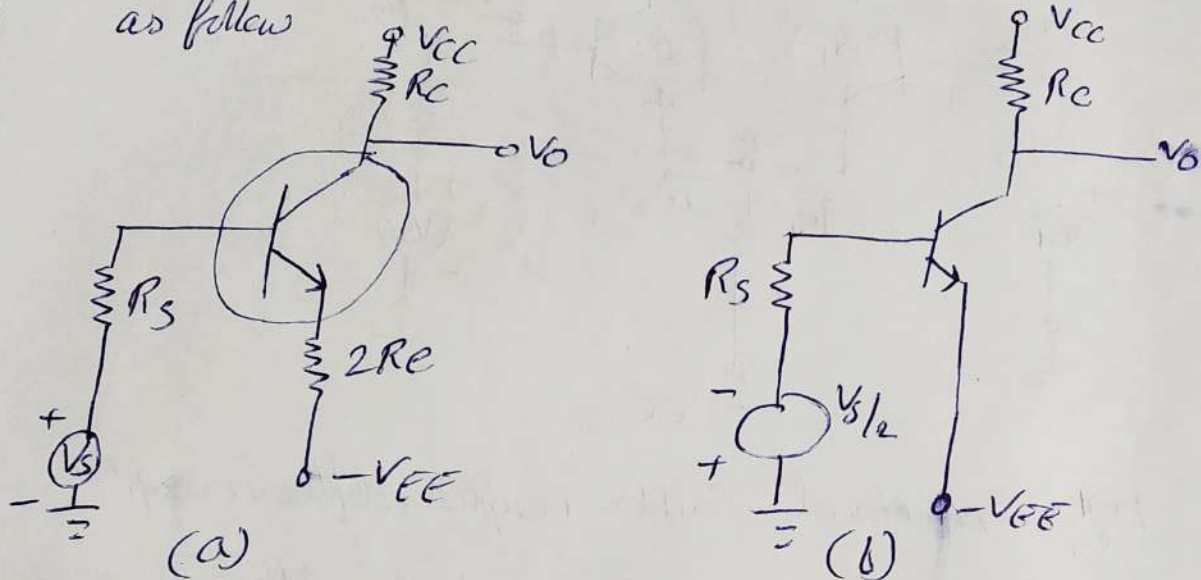 as follow
VCC
RC
VO
RS
2Re
+
VS
-
-VEE
(a)
VCC
RC
VO
RS
-
VS/2
+
-VEE
(b)